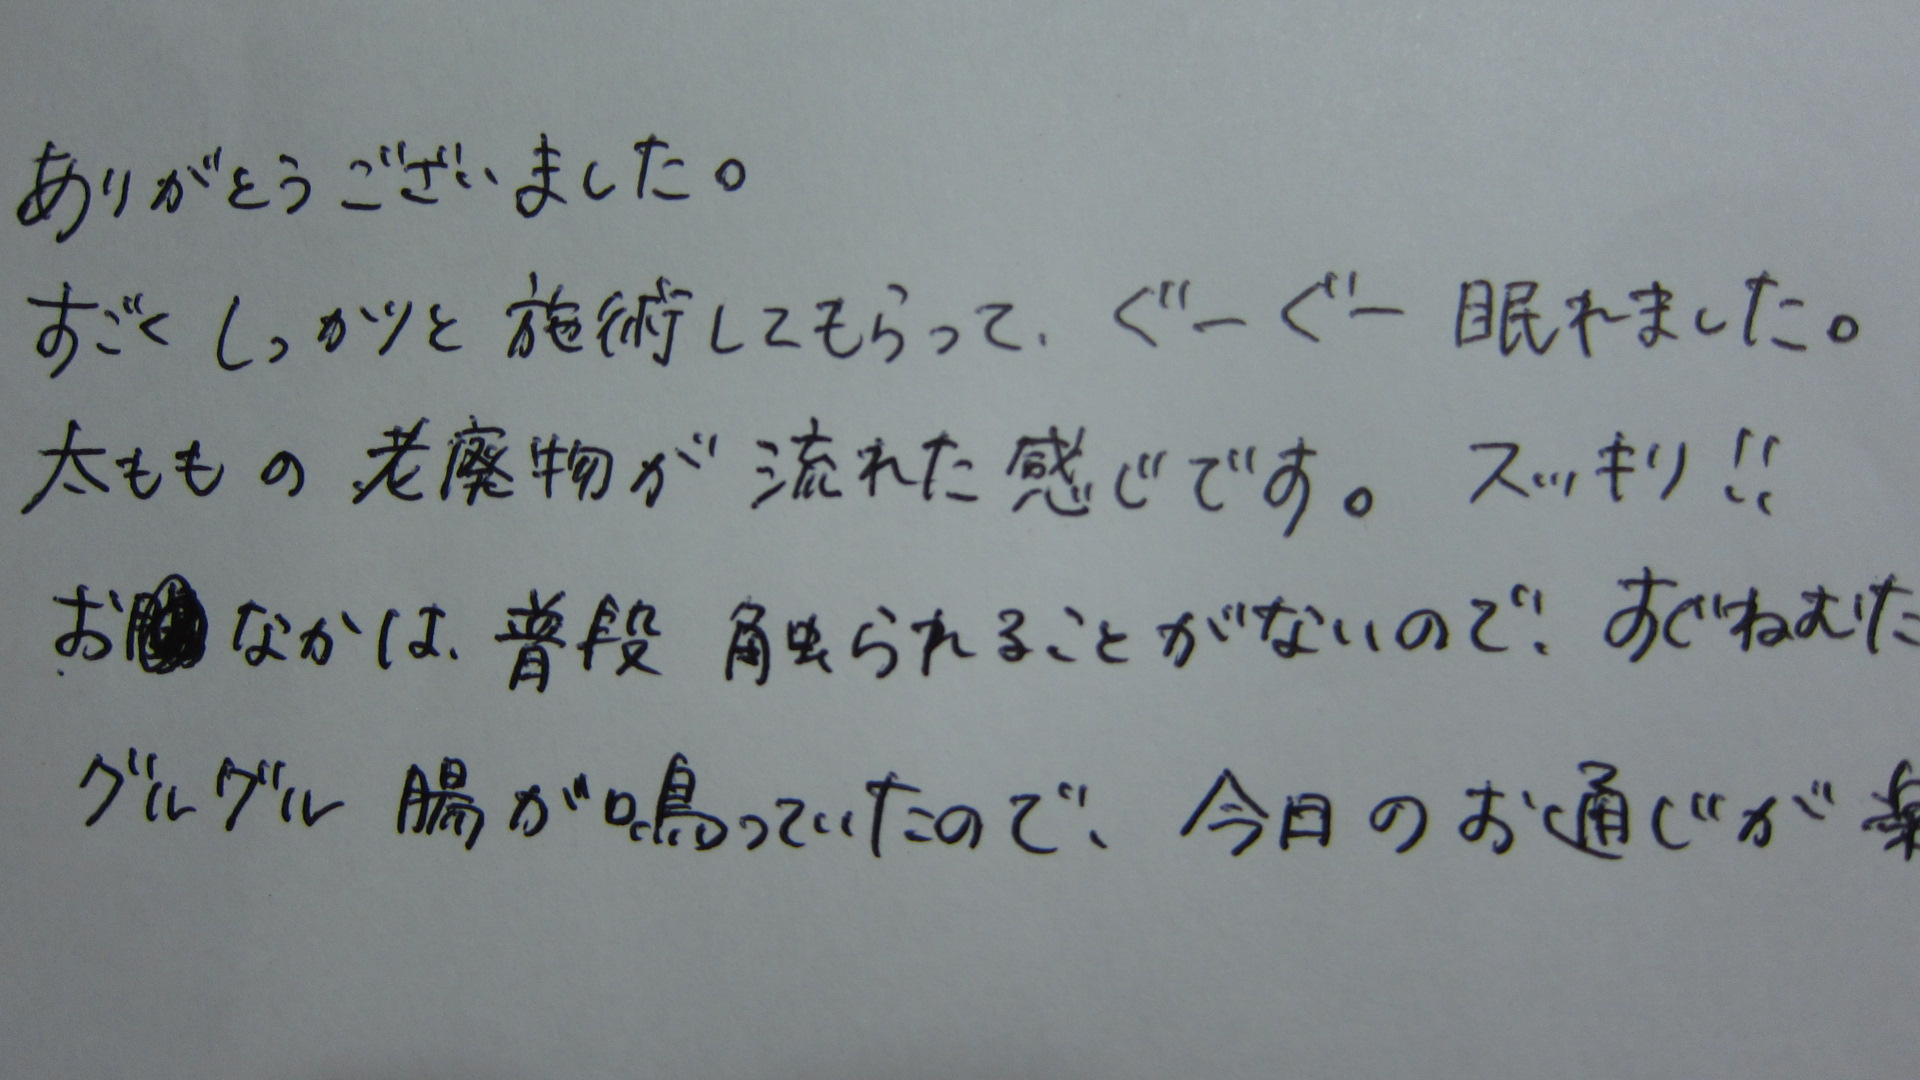 ありがとうございました。
すごくしっかりと施術してもらって、ぐーぐー眠れました。
太ももの老廃物が流れた感じです。 スッキリ!!
おなかは、普段触られることがないので、すぐねむた
グルグル腸が鳴っていたので、今日のお通じが